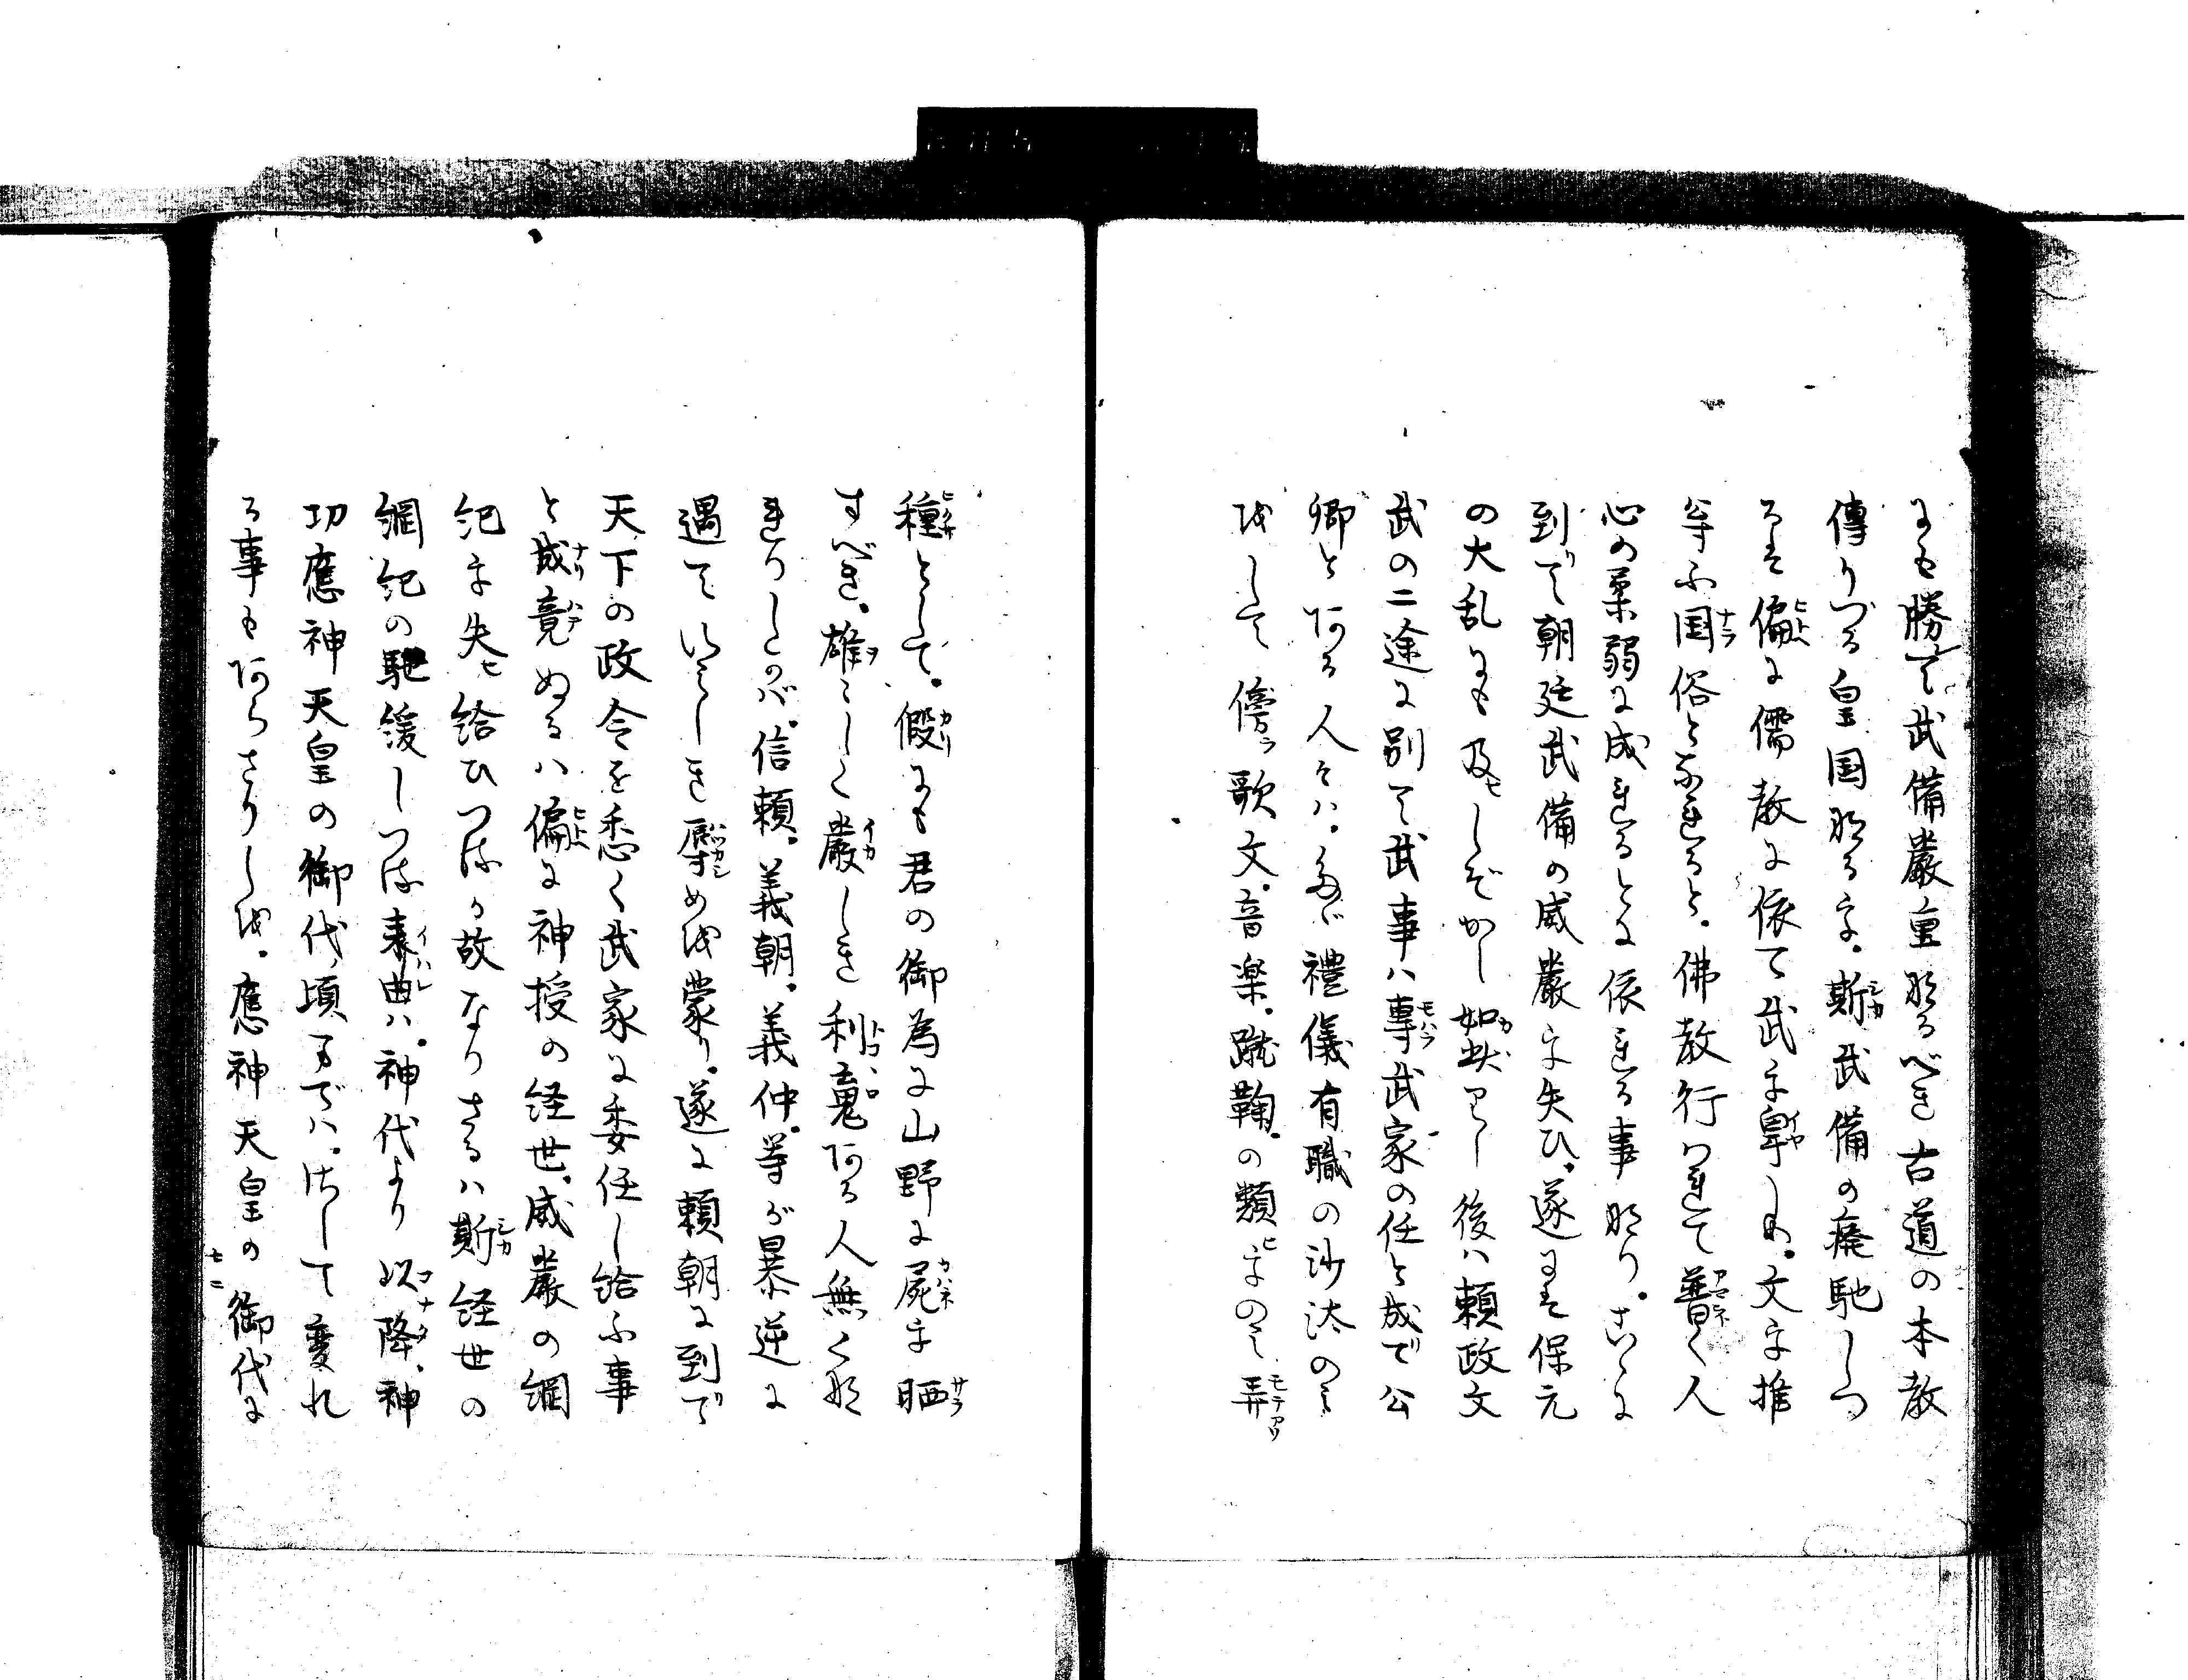 にも勝て武備嚴重なるべき古道の本教
傳りづる皇国なるを。斯武備の廃馳しつ
るは偏に儒教に依て武を卑しめ。文を推
尊ふ国俗となれると。佛教行はれて普く人
心の柔弱に成れるとに依れる事なり。こゝに
到りて朝廷武備の威嚴を失ひ。遂には保元
の大乱にも及しぞかし如此りし後ハ頼政文
武の二途に別て武事ハ專武家の任と成て公
卿とある人々ハ。たゞ禮儀有職の沙汰のミ
をして傍歌文。音楽。蹴鞠。の類をのミ弄
種として。假にも君の御為に山野に屍を晒
すべき。雄々しく嚴しき利鬼ある人無くな
れりしかバ。信頼。義朝。義仲。等が暴逆に
遇ていミしき辱めを蒙り。遂に頼朝に到て
天下の政令を悉く武家に委任し給ふ事
と成竟ぬるハ偏に神授の経世。威嚴の綱
紀を失せ給ひつるが故なりさるハ斯経世の
綱紀の馳緩しつる素典ハ。神代より以降。神
功應神天皇の御代頃までハ。けして変れ
る事もあらさりしを。應神天皇の御代に
七二